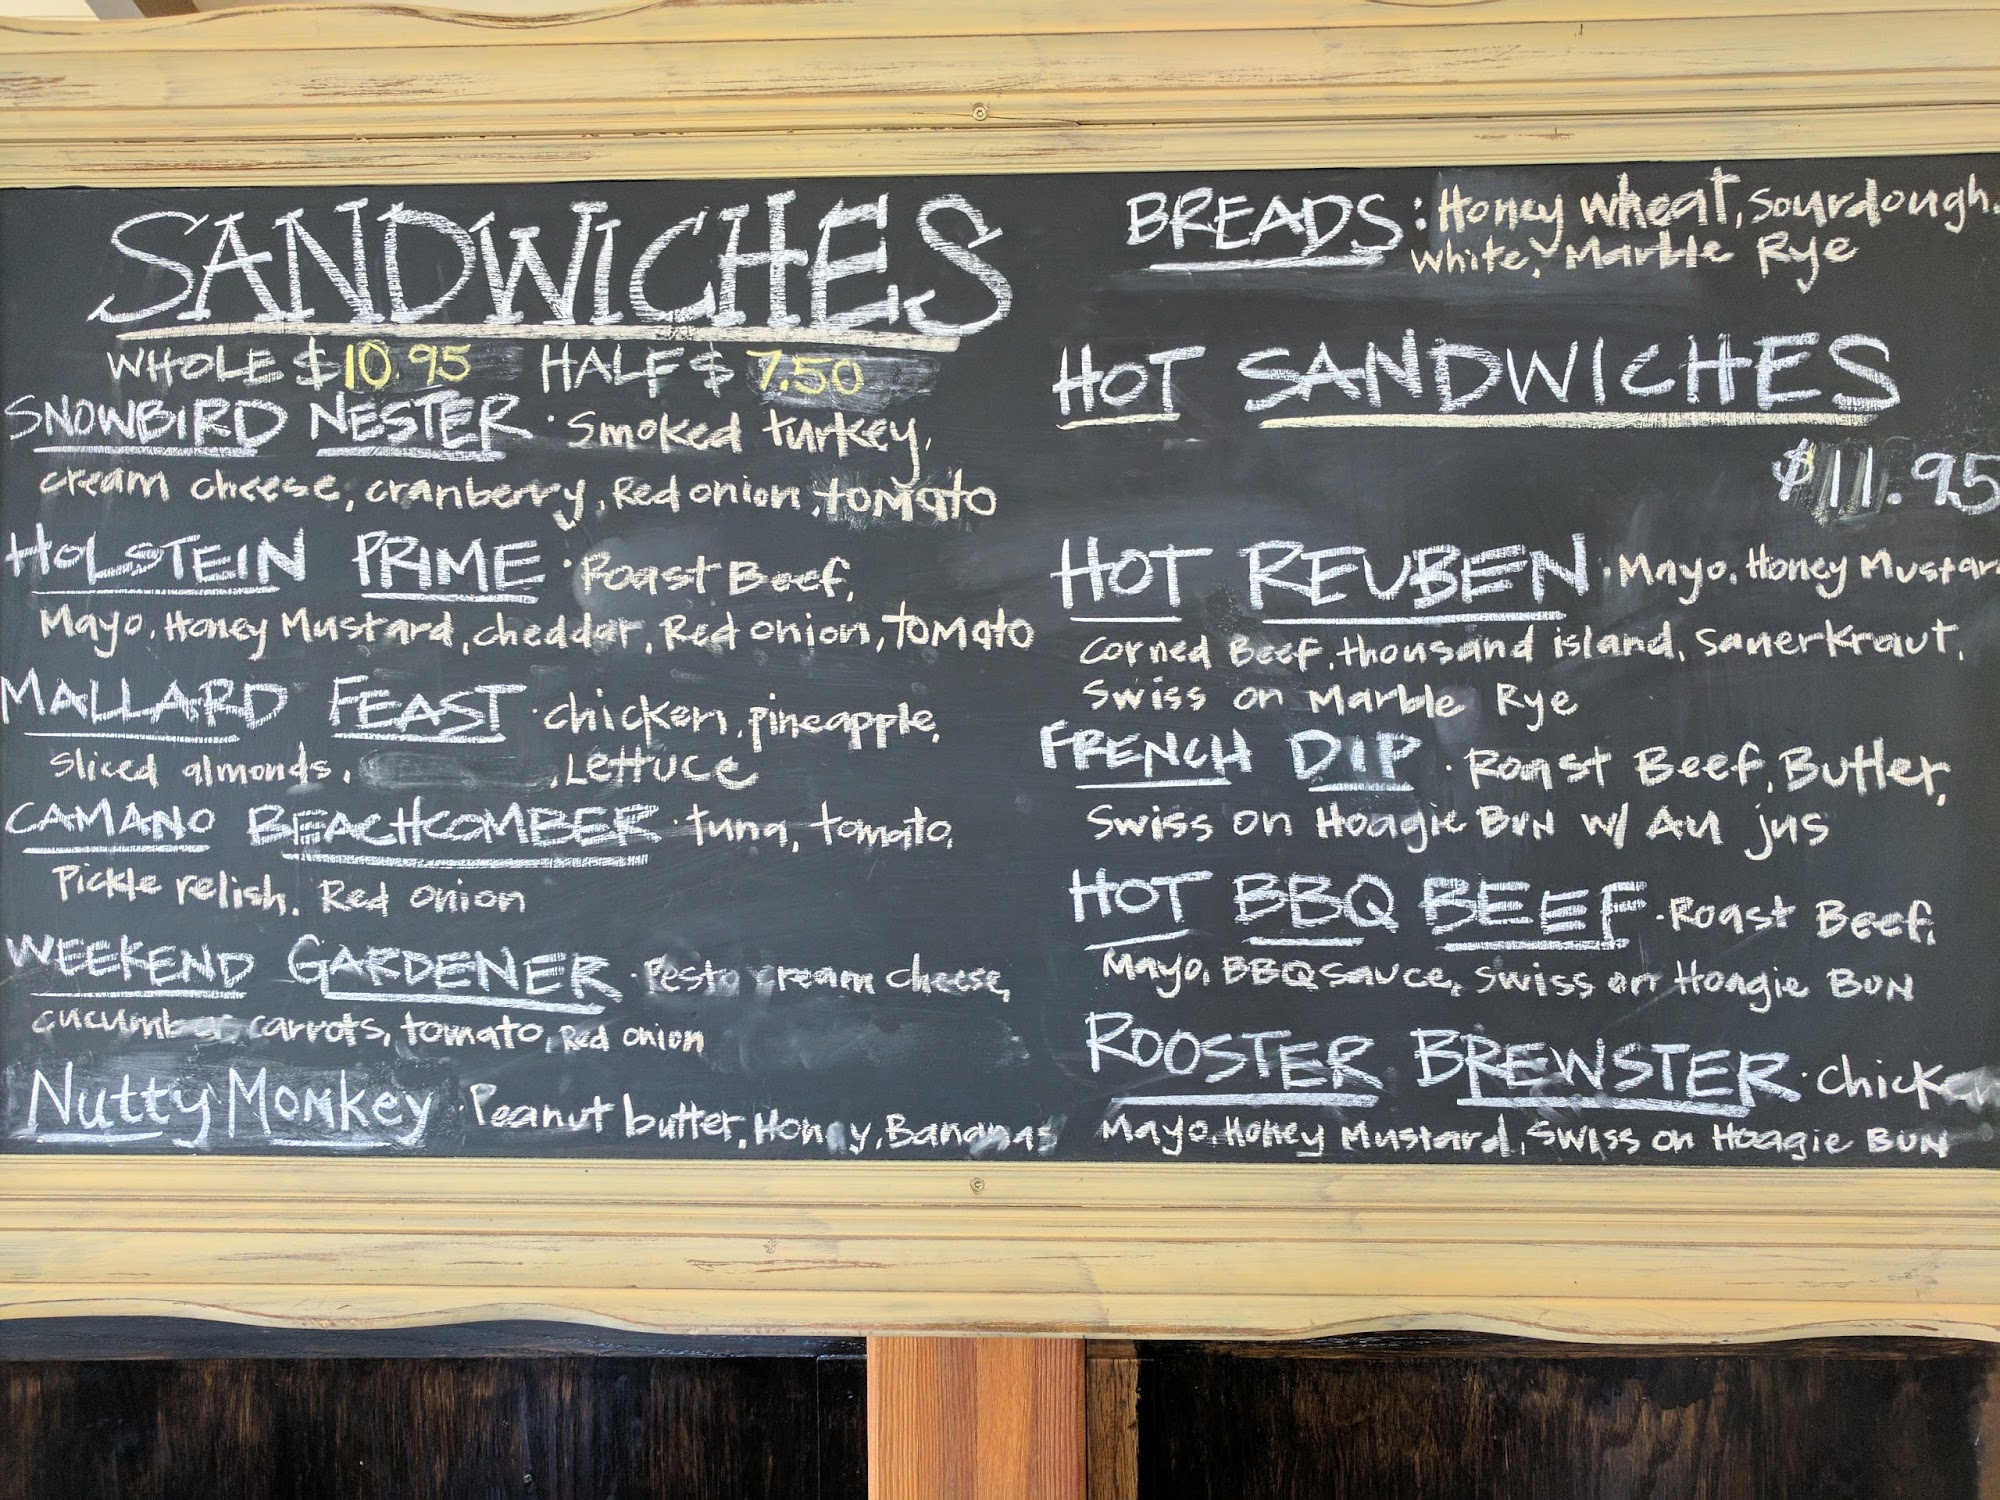 SANDWICHES
WHOLE $10.95 HALF $7.50
SNOWBIRD NESTER · Smoked turkey,
cream cheese, cranberry, Red onion, tomato
HOLSTEIN PRIME · Roast Beef,
Mayo, Honey Mustard, cheddar, Red onion, tomato
MALLARD FEAST · chicken, pineapple,
sliced almonds, , Lettuce
CAMANO BEACHCOMBER · tuna, tomato,
Pickle relish, Red onion
WEEKEND GARDENER · Pesto cream cheese,
cucumber carrots, tomato, Red onion
Nutty Monkey · Peanut butter, Honey, Bananas
BREADS: Honey wheat, Sourdough,
white, Marble Rye
HOT SANDWICHES
$11.95
HOT REUBEN · Mayo, Honey Mustard
corned Beef, thousand island, sauerkraut,
Swiss on Marble Rye
FRENCH DIP · Roast Beef, Butter,
Swiss on Hoagie BUN w/ Au jus
HOT BBQ BEEF · Roast Beef,
Mayo, BBQ sauce, Swiss on Hoagie BUN
ROOSTER BREWSTER · chicken
Mayo, Honey Mustard, Swiss on Hoagie BUN